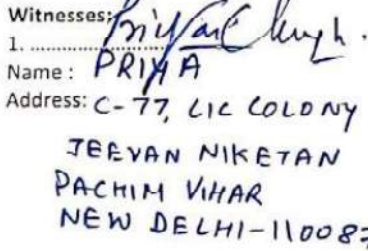 Witnesses:
1. ....................
Name : PRIYA
Address: C-77, LIC COLONY
JEEVAN NIKETAN
PACHIM VIHAR
NEW DELHI-110087